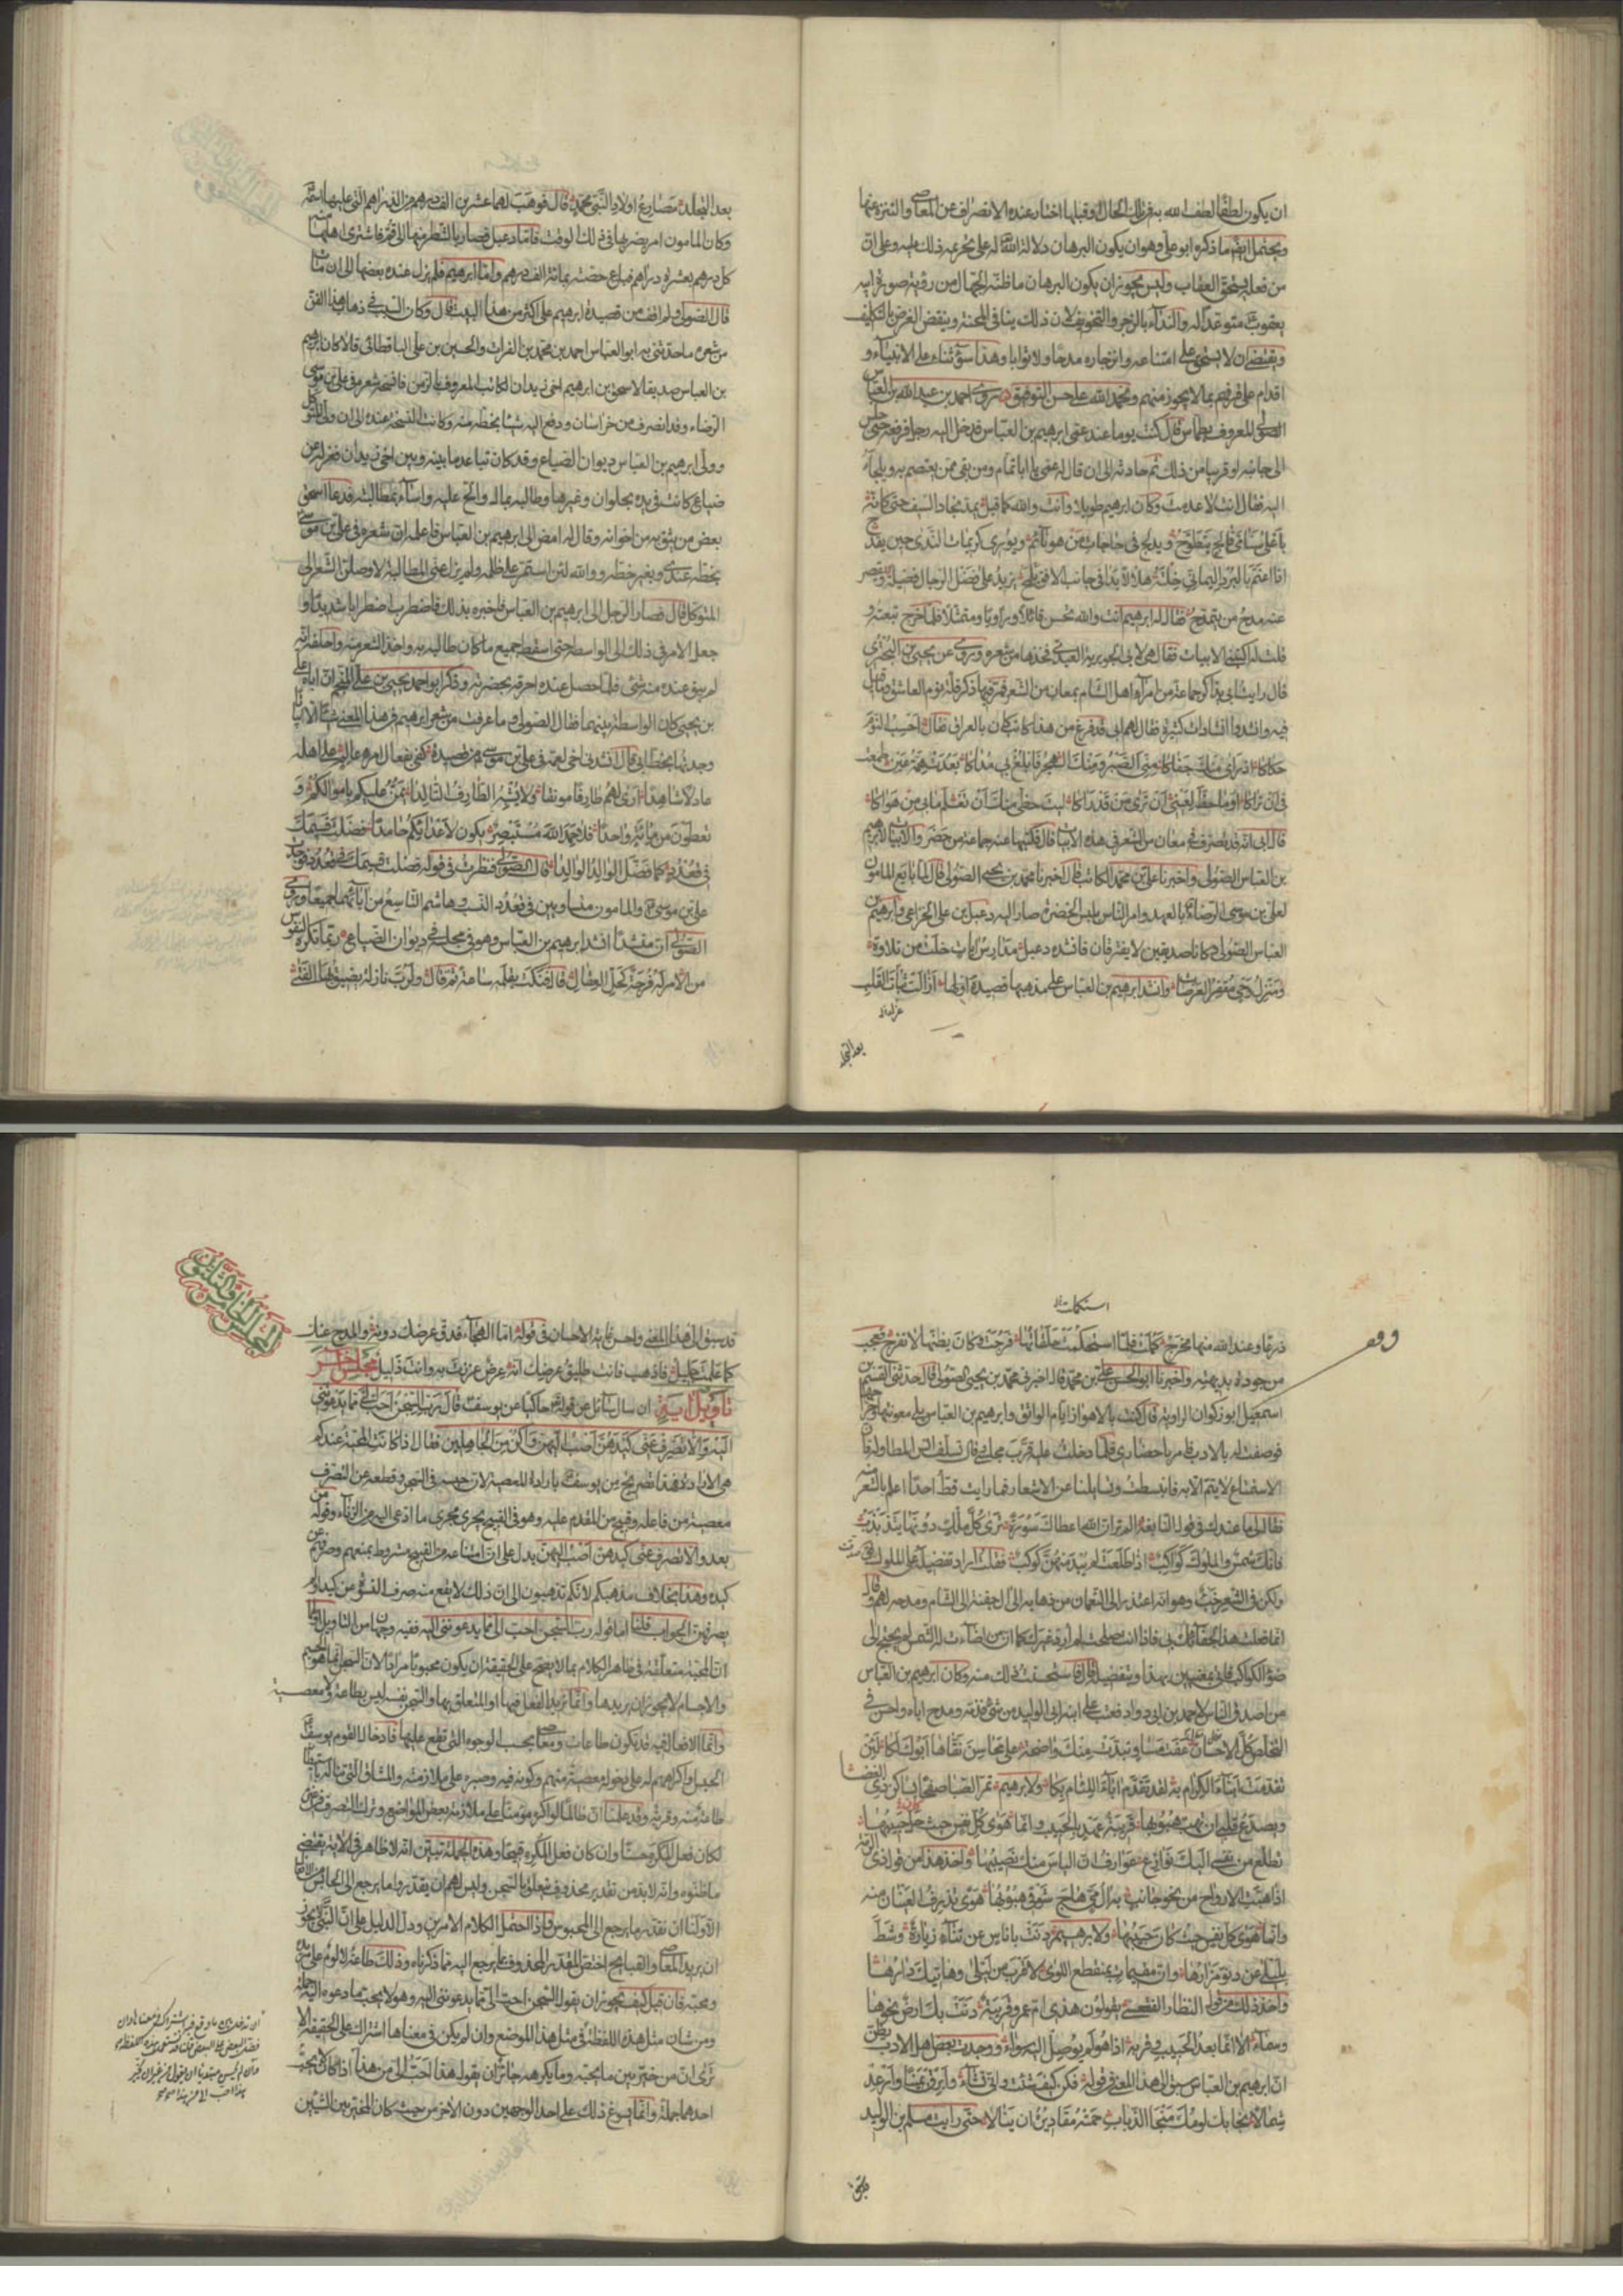 ان يكون لطفا لطف الله به فى تلك الحال او قبلها اختار عنده الانصراف عن المعاصى والتنزه عنها
ويحتمل ايضا ما ذكره ابو على وهو ان يكون البرهان دلالة الله له على تحريم ذلك عليه وعلى ان
من فعله يستحق العقاب وليس يجوز ان يكون البرهان ما ظنه الجهال من رؤية صورة ابيه
يعقوب متوعدا له والنداء بالزجر والتخويف لان ذلك ينافى المحنة وينقض الغرض بالتكليف
ويقتضى ان لا يستحق على امتناعه وانزجاره مدحا ولا ثوابا وهذا سوء ثناء على الانبياء و
اقدام على قرفهم بما لا يجوز منهم ونحمد الله على حسن التوفيق روى احمد بن عبد الله بن العباس
الصولى المعروف بطماس قال كنت يوما عند عمى ابرهيم بن العباس فدخل اليه رجل فرفعه حتى جلس
الى جانبه او قريبا من ذلك ثم حادثه الى ان قال له عمى يا ابا تمام ومن بقى ممن يعتصم به ويلجأ
اليه فقال انت لا عدمت وكان ابرهيم طويلا وانت والله كما قيل يمد نجاد السيف حتى كانه
باعلى سنامى فالج يتطوح ويدلج فى حاجات من هو نائم ويورى كريمات الندى حين يقدح
اذا اعتم بالبرد اليمانى خلته هلالا بدا فى جانب الافق يلمح يزيد على فضل الرجال فضيلة ويقصر
عنه مدح من يتمدح فقال له ابرهيم انت والله تحسن قائلا وراويا ومتمثلا فلما خرج تبعته و
قلت له اكتبنى الابيات فقال هى لابى الجويرية العبدى فخذها من شعره وروى عن يحيى بن البحترى
قال رايت ابى يذاكر جماعة من امراء اهل الشام بمعان من الشعر فمر فيها ذكر قلة نوم العاشق وما قيل
فيه وانشدوا انشادات كثيرة فقال لهم ابى قد فرغ من هذا كاتب كان بالعراق فقال احسب النوم
حكاكا اذ راى منك جفاكا منى الصبر ومنك الهجر فابلغ بى مداكا بعدت همة عين طمعت
فى ان تراكا اوما حظ لعينى ان ترى من قد راكا ليت حظى منك ان تعلم ما بى من هواكا
قال ابى انه قد تصرف فى معان من الشعر فى هذه الابيات قال فكتبها عنه جماعة من حضر والابيات لابرهيم
بن العباس الصولى واخبرنا على بن محمد الكاتب قال اخبرنا محمد بن يحيى الصولى قال لما بايع المامون
لعلى بن موسى الرضا بالعهد وامر الناس بلبس الخضرة صار اليه دعبل بن على الخزاعى وابرهيم بن
العباس الصولى وكانا صديقين لا يفترقان فانشده دعبل مدارس ايات خلت من تلاوة
ومنزل وحى مقفر العرصات وانشد ابرهيم بن العباس على مذهبهما قصيدة اولها ازالت عناء القلب
بعد التجلد
بعد التجلد مصارع اولاد النبى محمد قال فوهب لهما عشرين الف درهم من الدراهم التى عليها اسمه
وكان المامون امر بضربها فى ذلك الوقت فاما دعبل فصار بالشطر منها الى قم فاشترى اهلها منه
كل درهم بعشرة دراهم فباع حصته بمائة الف درهم واما ابرهيم فلم يزل عنده بعضها الى ان مات
قال الصولى ولم اقف من قصيدة ابرهيم على اكثر من هذا البيت قال وكان السبب فى ذهاب هذا الفن
من شعره ما حدثنى به ابو العباس احمد بن محمد بن الفرات والحسين بن على الباقطائى قالا كان ابرهيم
بن العباس صديقا لاسحق بن ابرهيم اخى زيدان الكاتب المعروف بالزمن فانسخه شعره فى على بن موسى
الرضاء وقد انصرف من خراسان ودفع اليه شيئا بخطه منه وكانت النسخة عنده الى ان ولى المتوكل
وولى ابرهيم بن العباس ديوان الضياع وقد كان تباعد ما بينه وبين اخى زيدان فعزله عن
ضياع كانت فى يده بحلوان وغيرها وطالبه بمال والح عليه واساء مطالبته فدعا اسحق
بعض من يثق به من اخوانه وقال له امض الى ابرهيم بن العباس فاعلمه ان شعره فى على بن موسى
بخطه عندى وبغير خطه ووالله لئن استمر على ظلمه ولم يزل عنى المطالبة لاوصلن الشعر الى
المتوكل قال فصار الرجل الى ابرهيم بن العباس فاخبره بذلك فاضطرب اضطرابا شديدا و
جعل الامر فى ذلك الى الواسطة حتى اسقط جميع ما كان طالبه به واخذ الشعر منه واحلفه انه
لم يبق عنده منه شئ فلما حصل عنده احرقه بحضرته وذكر ابو احمد يحيى بن على المنجم ان اباه على
بن يحيى كان الواسطة بينهما فقال الصولى وما عرفت من شعر ابرهيم فى هذا المعنى شيئا الا ابياتا
وجدتها بخط ابى قال انشدنى اخى لعمه فى على بن موسى من قصيدة كفى بفعال امرء عالم على اهله
عادلا شاهدا ارى لهم طارفا مونقا ولا يشبه الطارف التالدا يمن عليكم باموالكم و
تعطون من مائة واحدا فلا يحمد الله مستبصر يكون لاعدائكم حامدا فضلت قسيمك
فى قعدد كما فضل الوالد الوالدا قال الصولى فنظرت فى قوله فضلت قسيمك فى قعدد فوجدت
على بن موسى والمامون متساويين فى قعدد النسب وهاشم التاسع من ابائهما جميعا وروى
الصولى ان منشدا انشد ابرهيم بن العباس وهو فى مجلسه فى ديوان الضياع ربما تكره النفوس
من الامر له فرجة كحل العقال قال فنكت بقلمه ساعة ثم قال ولرب نازلة يضيق بها الفتى
استكملت
ذرعا وعند الله منها مخرج كملت فلما استحكمت حلقاتها فرجت وكان يظنها لا تفرج فعجب
من جودة بديهته واخبرنا ابو الحسن على بن محمد قال اخبرنى محمد بن يحيى الصولى قال حدثنى القسم بن
اسمعيل ابو ذكوان الراوية قال كنت بالاهواز ايام الواثق وابرهيم بن العباس يلى معونتها وخراجها
فوصفت له بالادب فامر باحضارى فلما دخلت عليه قرب مجلسى وقال تسلف انس المطاولة فان
الاستمتاع لا يتم الا به فانبسطت وتسايلنا عن الاشعار فما رايت قط احدا اعلم بالشعر منه
فقال لى ما عندك فى قول النابغة الم تر ان الله اعطاك سورة ترى كل ملك دونها يتذبذب
فانك شمس والملوك كواكب اذا طلعت لم يبد منهن كوكب فقلت اراد تفضيله على الملوك
ولكن فى الشعر خبء وهو انه اعتذر الى النعمان من ذهابه الى ال جفنة الى الشام ومدحه لهم وقال
انما فعلت هذا لجفائك بى فاذا انت صلحت لم ارد غيرك كما ان من اضاءت له الشمس لم يحتج الى
ضوء الكواكب فاتى بمعنيين بهذا وبتفضيله قال فاستحسنت ذلك منه وكان ابرهيم بن العباس
من اصدق الناس لاحمد بن ابى دواد فعتب على ابنه ابى الوليد من شئ قدمه ومدح اباه واحسن فى
التخلص كل الاحسان عفت مساو تبدت منك واضحة على محاسن نقاها ابوك لكا لئن
تقدمت ابناء الكرام به لقد تقدم ابناء اللئام بكا ولابرهيم تمر الصبا صفحا بساكن ذى الغضا
ويصدع قلبى ان يهب هبوبها قريبة عهد بالحبيب وانما هوى كل نفس حيث حل حبيبها
تطلع من نفسى اليك نوازع عوارف ان الياس منك نصيبها واخذ هذا من قول ذى الرمة
اذا هبت الارواح من نحو جانب به ال مى هاج شوقى هبوبها هوى تذرف العينان منه
وانما هوى كل نفس حيث كان حبيبها ولابرهيم دنت باناس عن تناء زيارة وشط
بليلى عن دنو مزارها وان مقيمات بمنقطع اللوى لاقرب من ليلى وهاتيك دارها
واخذ ذلك من قول النظار الفقعسى يقولون هذى ام عمرو قريبة دنت بك ارض نحوها
وسماء الا انما بعد الحبيب وقربه اذا هو لم يوصل اليه سواء ووجدت بعض اهل الادب يظن
ان ابرهيم بن العباس سبق الى هذا المعنى فى قوله فكن كيف شئت وانى تشاء وابرق يمينا وارعد
شمالا نجا بك لومك منجا الذباب حمته مقاذيره ان ينالا حتى رايت مسلم بن الوليد
المجلس الخامس والثلثون
قد سبق الى هذا المعنى واحسن غاية الاحسان فى قوله اما الهجاء فدق عرضك دونه والمدح عنك
كما علمت جليل فاذهب فانت طليق عرضك انه عرض عززت به وانت ذليل مجلس اخر
تاويل اية ان سال سائل عن قوله حاكيا عن يوسف قال رب السجن احب الى مما يدعوننى
اليه والا تصرف عنى كيدهن اصب اليهن واكن من الجاهلين فقال اذا كانت المحبة عندكم
هى الارادة فهذا تصريح من يوسف بارادة المعصية لان حبسه فى السجن وقطعه عن التصرف
معصية من فاعله وقبيح من المقدم عليه وهو فى القبح يجرى مجرى ما ادعى اليه من الزناء وقوله من
بعد والا تصرف عنى كيدهن اصب اليهن يدل على ان امتناعه من القبيح مشروط بمنعهن وصرفهن عن
كيده وهذا بخلاف مذهبكم لانكم تذهبون الى ان ذلك لا يقع منه صرف النسوة عن كيده او لم
يصرفهن الجواب قلنا اما قوله رب السجن احب الى مما يدعوننى اليه ففيه وجهان من التاويل اولهما
ان المحبة متعلقة فى ظاهر الكلام بما لا يصح على الحقيقة ان يكون محبوبا مرادا لان السجن انما هو الجسم
والاجسام لا يجوز ان يريدها وانما يريد الفعل فيها او المتعلق بها والسجن نفسه ليس بطاعة ولا معصية
وانما الافعال فيه قد تكون طاعات ومعاصى بحسب الوجوه التى تقع عليها فادخال القوم يوسف
الحبس او اكراههم له على دخوله معصية منهم وكونه فيه وصبره على ملازمته والمشاق التى تناله باستيطانه
طاعة منه وقربة وقد علمنا ان ظالما لو اكره مؤمنا على ملازمة بعض المواضع وترك التصرف فى غيره
لكان فعل المكره حسنا وان كان فعل المكرِه قبيحا وهذه الجملة تبين انه لا ظاهر فى الاية يقتضى
ما ظنوه وانه لا بد من تقدير محذوف يتعلق بالسجن وليس لهم ان يقدروا ما يرجع الى الحابس من الافعال
الا ولنا ان نقدر ما يرجع الى المحبوس فاذا احتمل الكلام الامرين ودل الدليل على ان النبى لا يجوز
ان يريد المعاصى والقبايح اختص المقدر المحذوف بما يرجع اليه مما ذكرناه وذلك طاعة لا لوم على مريده
ومحبه فان قيل كيف يجوز ان يقول السجن احب الى مما يدعوننى اليه وهو لا يحب ما دعوه اليه جملة
ومن شان مثل هذه اللفظة فى مثل هذا الموضع وان لم يكن فى معناها اشتراك على الحقيقة الا
ترى ان من خير بين ما يحبه وما يكرهه جائز ان يقول هذا احب الى من هذا اذا كان لا يحب
احدهما جملة وانما يسوغ ذلك على احد الوجهين دون الاخر من حيث كان المخير بين الشيئين